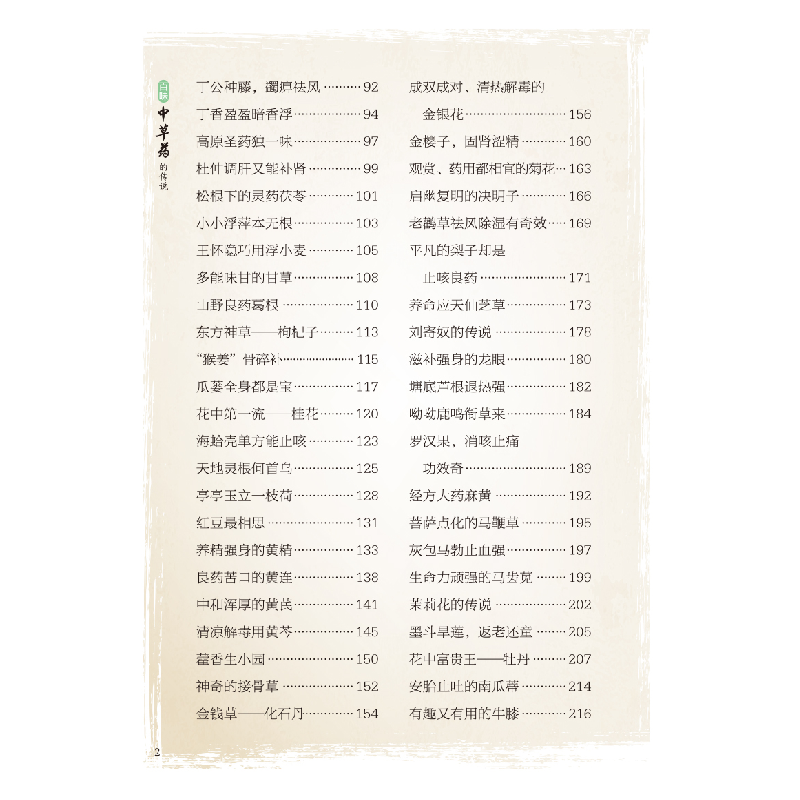 百味
中草药
的传说
丁公种藤，蠲痹祛风………92
丁香盈盈暗香浮…………94
高原圣药独一味…………97
杜仲调肝又能补肾………99
松根下的灵药茯苓………101
小小浮萍本无根…………103
王怀隐巧用浮小麦………105
多能味甘的甘草…………108
山野良药葛根……………110
东方神草——枸杞子……113
“猴姜”骨碎补……………115
瓜蒌全身都是宝…………117
花中第一流——桂花……120
海蛤壳单方能止咳………123
天地灵根何首乌…………125
亭亭玉立一枝荷…………128
红豆最相思………………131
养精强身的黄精…………133
良药苦口的黄连…………138
中和浑厚的黄芪…………141
清凉解毒用黄芩…………145
藿香生小园………………150
神奇的接骨草……………152
金钱草——化石丹………154
成双成对、清热解毒的
金银花……………………156
金樱子，固肾涩精………160
观赏、药用都相宜的菊花…163
启盲复明的决明子………166
老鹳草祛风除湿有奇效…169
平凡的梨子却是
止咳良药…………………171
养命应天仙芝草…………173
刘寄奴的传说……………178
滋补强身的龙眼…………180
塘底芦根退热强…………182
呦呦鹿鸣衔草来…………184
罗汉果，消咳止痛
功效奇……………………189
经方大药麻黄……………192
菩萨点化的马鞭草………195
灰包马勃止血强…………197
生命力顽强的马齿苋……199
茉莉花的传说……………202
墨斗旱莲，返老还童……205
花中富贵王——牡丹……207
安胎止吐的南瓜蒂………214
有趣又有用的牛膝………216
2